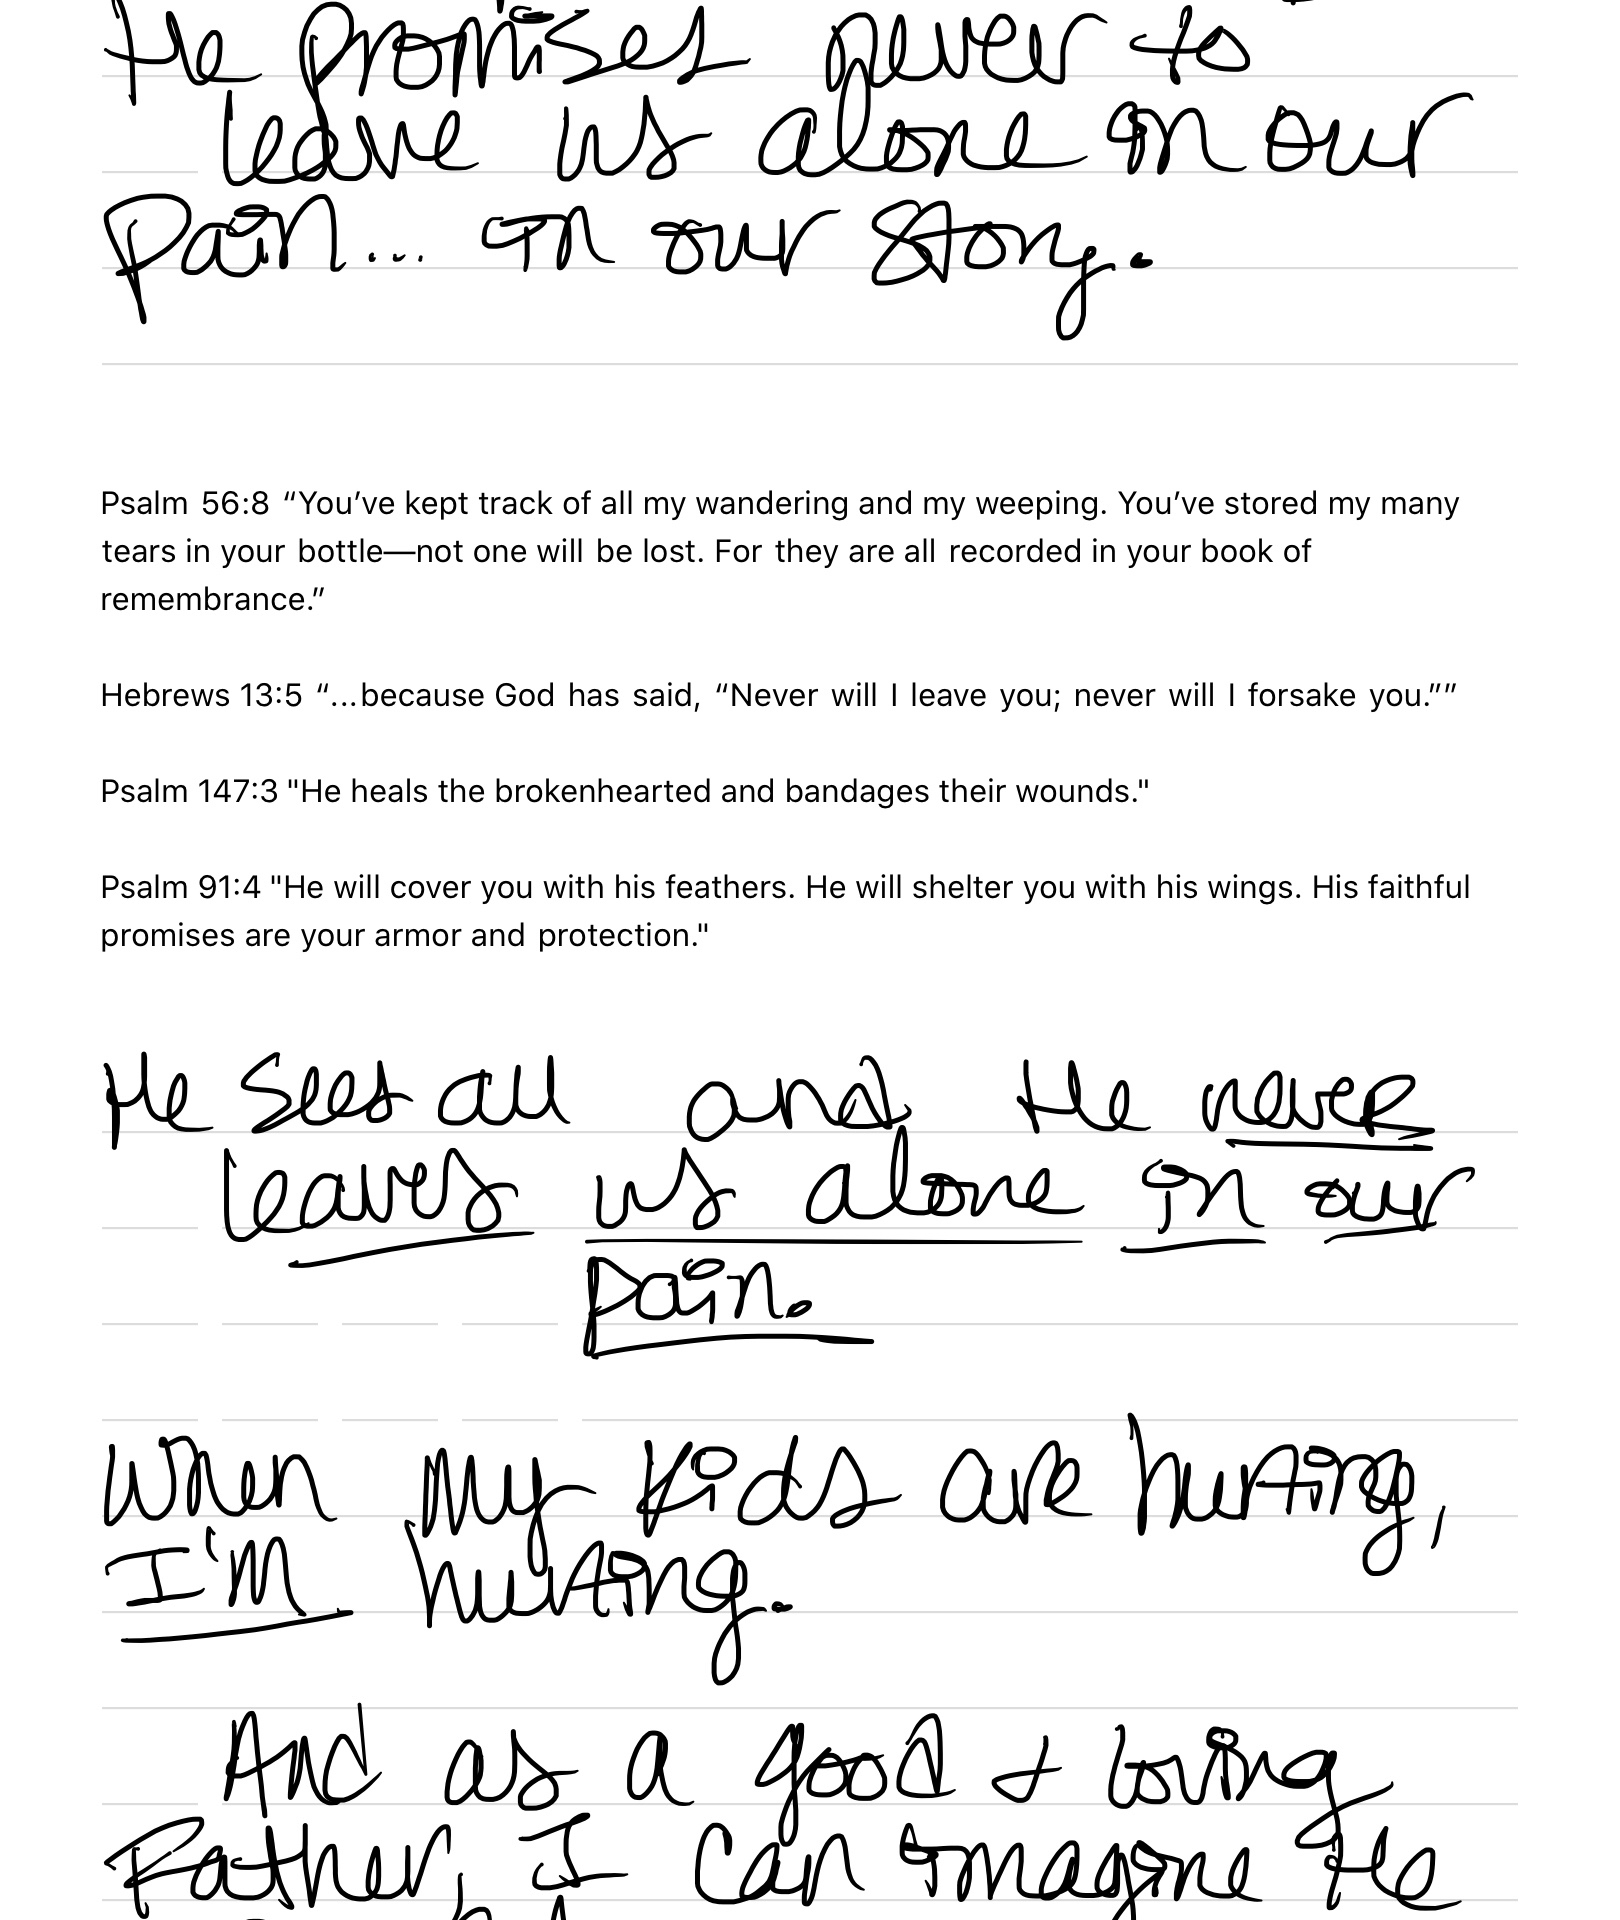 He promises never to
leave us alone in our
pain... in our story.
Psalm 56:8 “You’ve kept track of all my wandering and my weeping. You’ve stored my many
tears in your bottle—not one will be lost. For they are all recorded in your book of
remembrance.”
Hebrews 13:5 “...because God has said, “Never will I leave you; never will I forsake you.””
Psalm 147:3 "He heals the brokenhearted and bandages their wounds."
Psalm 91:4 "He will cover you with his feathers. He will shelter you with his wings. His faithful
promises are your armor and protection."
He sees all and He never
leaves us alone in our
pain.
When my kids are hurting,
I'm hurting.
And as a good + loving
Father, I can imagine He